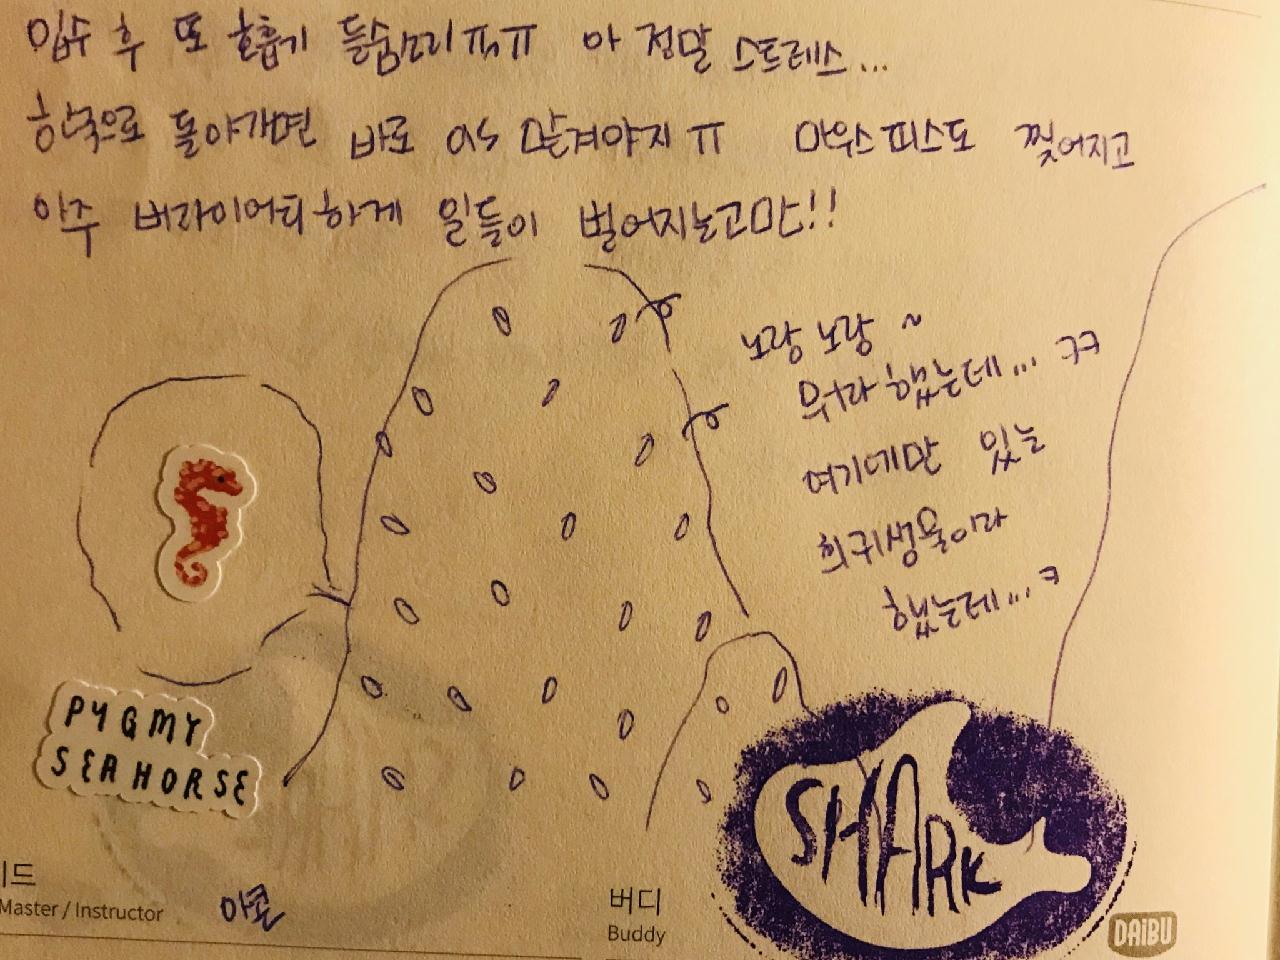 입수 후 또 호흡기 들숨물리ㅠㅠㅠ 아 정말 스트레스...
한국으로 돌아가면 바로 AS 맡겨야지 ㅠ 마우스피스도 찢어지고
아주 버라이어티하게 일들이 벌어지는고만!!
노랑 노랑 ~
뭐라 했는데... ㅋㅋ
여기에만 있는
희귀생물이라
했는데...ㅋ
PYGMY
SEAHORSE
SHARK
이드
Master / Instructor
아콘
버디
Buddy
DAiBU